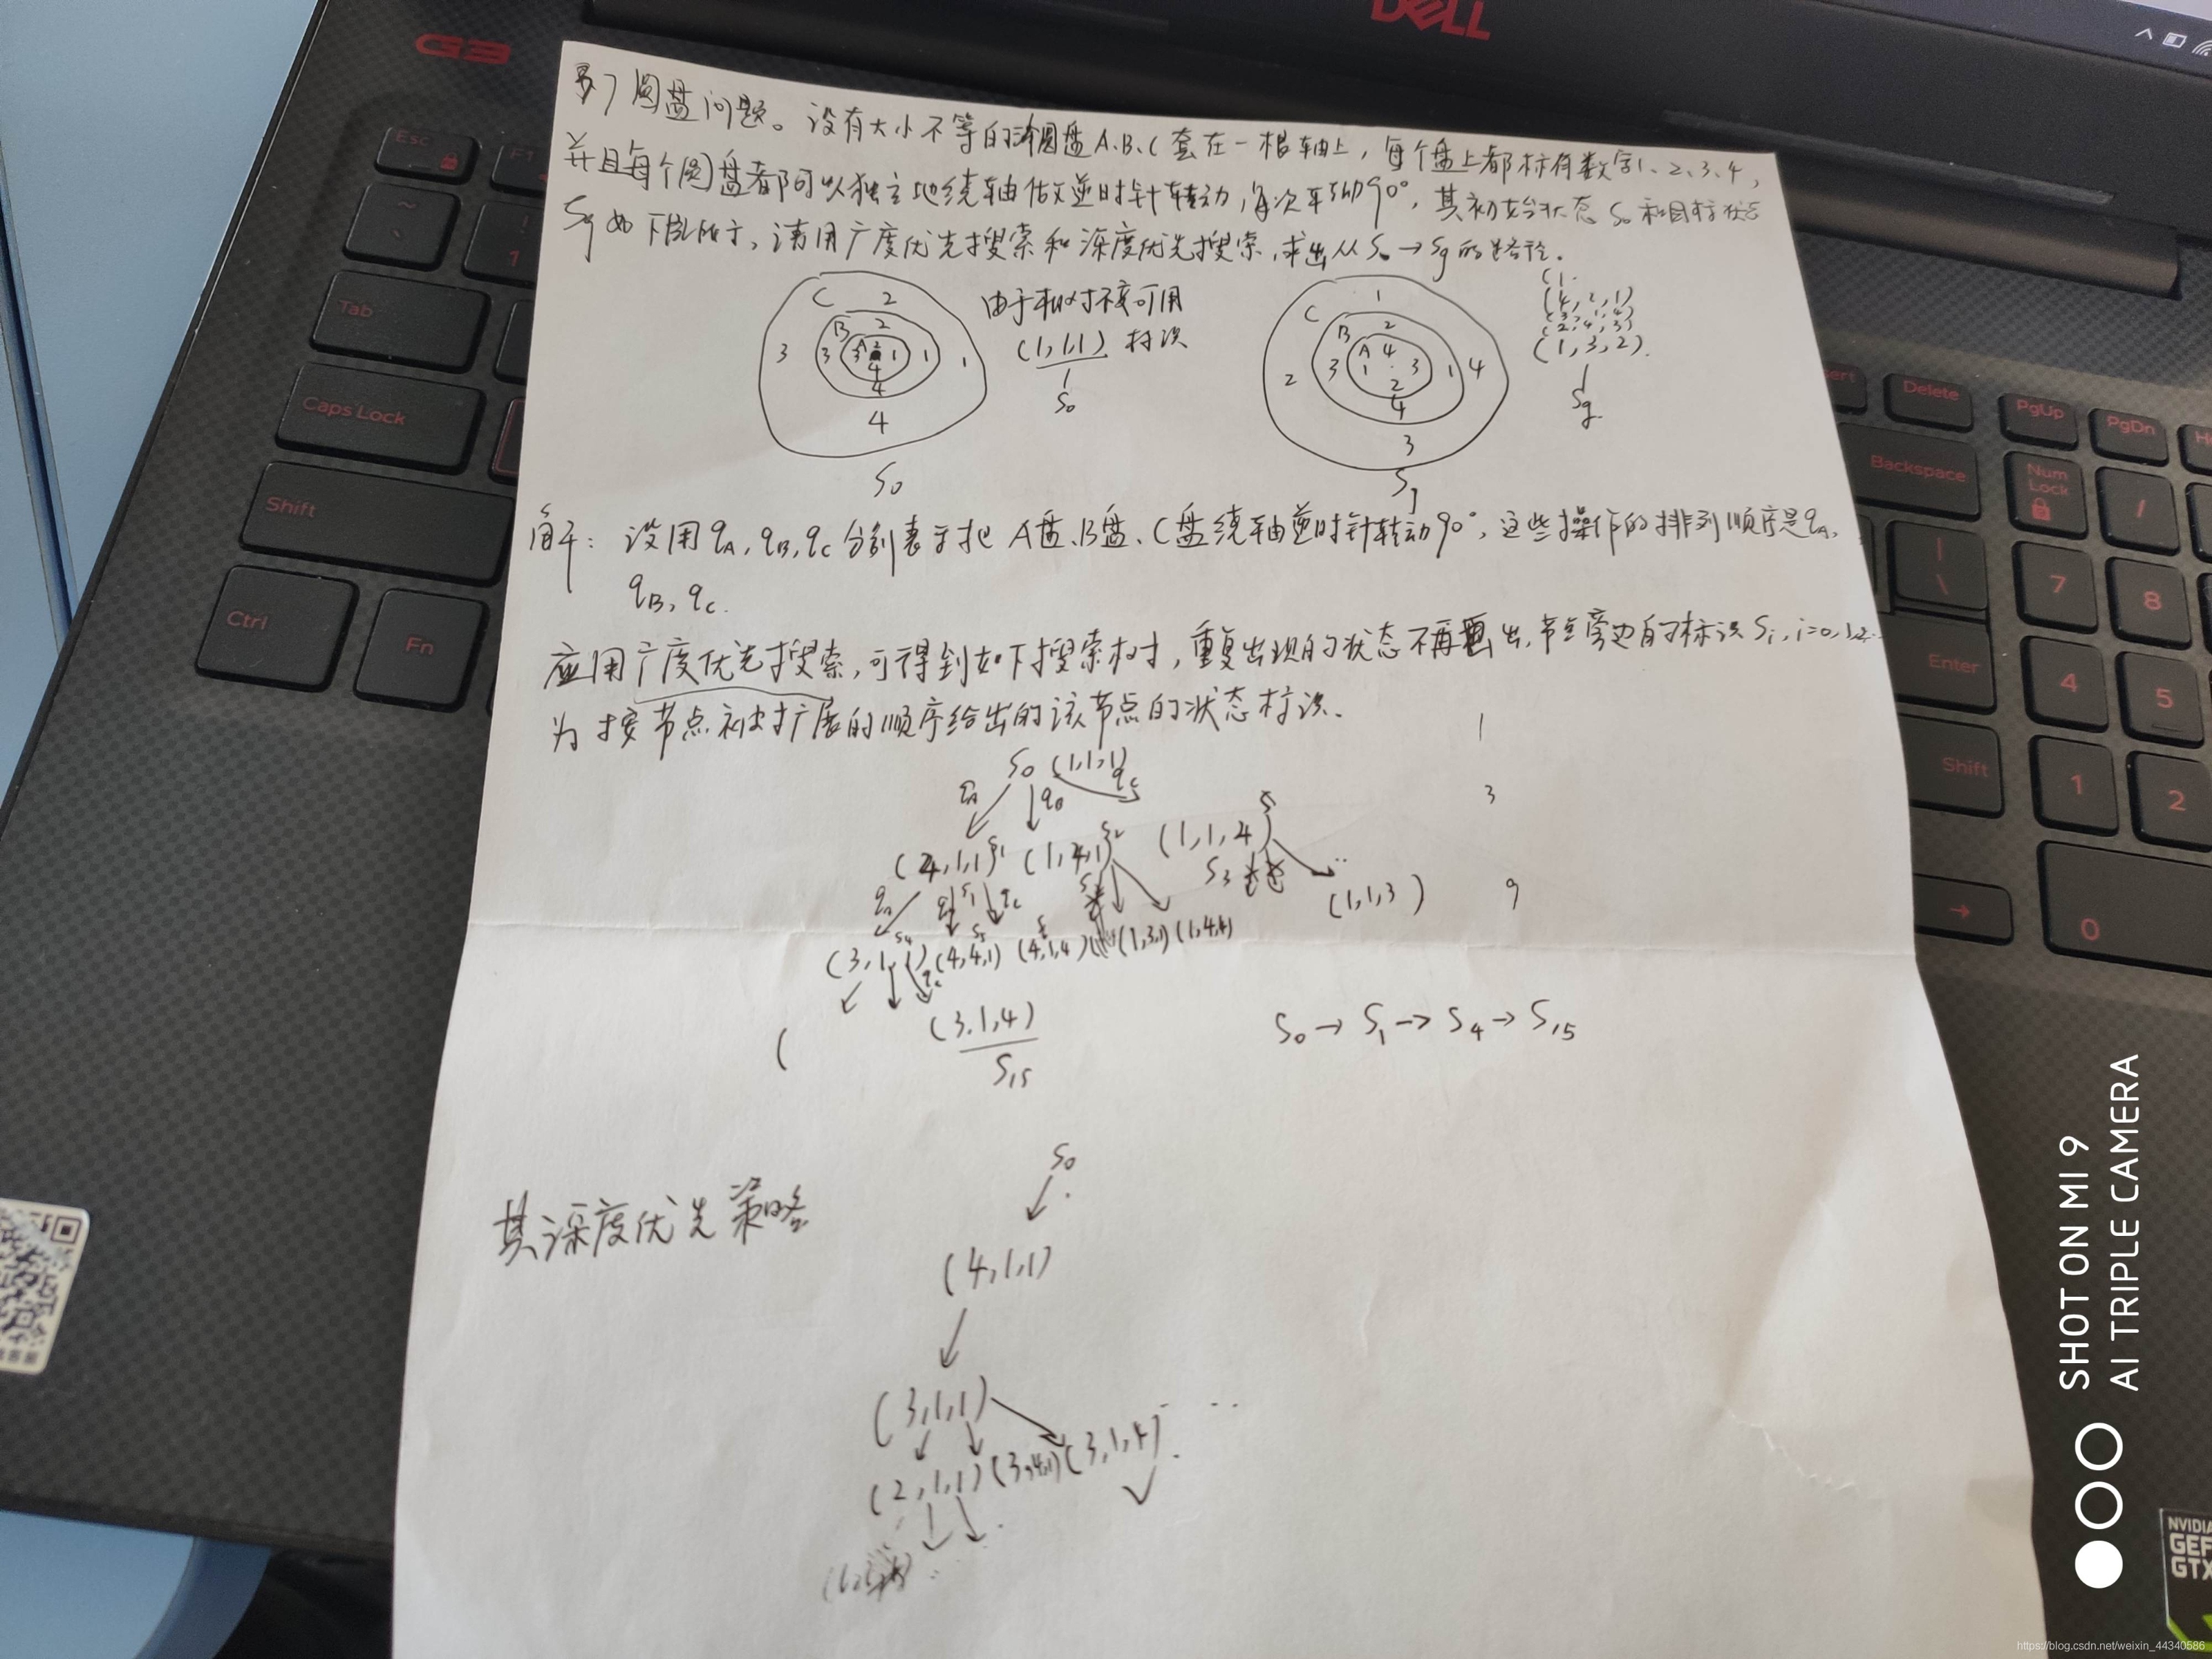 DELL
G3
圆盘问题。设有大小不等的圆盘A、B、C套在一根轴上，每个盘上都标有数字1、2、3、4，
并且每个圆盘都可以独立地绕轴做逆时针转动，每次转动90°，其初始状态S0和目标状态
Sg如下图所示，请用广度优先搜索和深度优先搜索，求出从S0→Sg的路径.
C 2
B 2
3 3 A 3 2 1 1 1
4
4
4
S0
由于相对不变可用
(1,1,1) 标识
S0
1
C
B 2
2 3 A 4 1 3 1 4
2
4
3
Sg
(4,2,1)
(3,1,4)
(2,4,3)
(1,3,2).
Sg
解：设用qA,qB,qC分别表示把A盘、B盘、C盘绕轴逆时针转动90°，这些操作的排列顺序是qA,
qB,qC.
应用广度优先搜索,可得到如下搜索树，重复出现的状态不再画出,节点旁边的标识Si,i=0,1,2..
为按节点被扩展的顺序给出的该节点的状态标识.
S0 (1,1,1) 1
qA qB qC 3
(4,1,1) S1 (1,4,1) S2 (1,1,4) S3
qA qC (1,1,3) 9
(3,1,1) S4 (4,4,1) S5 (4,1,4) (1,3,1) (1,4,4)
qC
( (3,1,4)
S15
S0→S1→S4→S15
其深度优先策略
S0
(4,1,1)
(3,1,1)
(2,1,1) (3,4,1) (3,1,4)
Esc F1
Tab 1
Caps Lock
Shift
Ctrl Fn
Insert Delete PgUp PgDn
Backspace Num Lock /
| \ 7 8
Enter 4 5
Shift 1 2
→ 0
SHOT ON MI 9
AI TRIPLE CAMERA
NVIDIA
GEF
GTX
https://blog.csdn.net/weixin_44340586